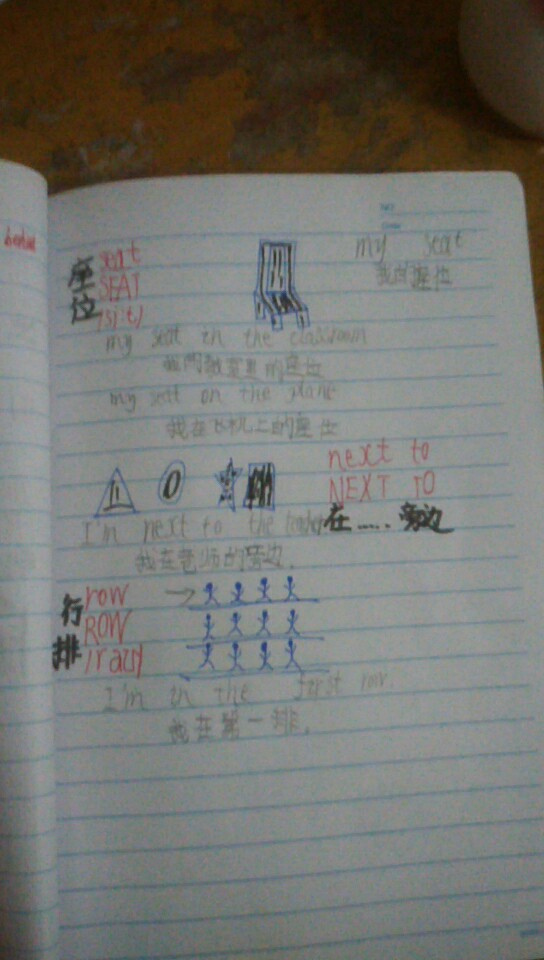 座位
seat
SEAT
/si:t/
my seat
我的座位
my seat in the classroom
我的教室里的座位
my seat on the plane
我在飞机上的座位
next to
NEXT TO
在......旁边
I'm next to the teacher
我在老师的旁边.
行排
row
ROW
I'm in the first row.
我在第一排.